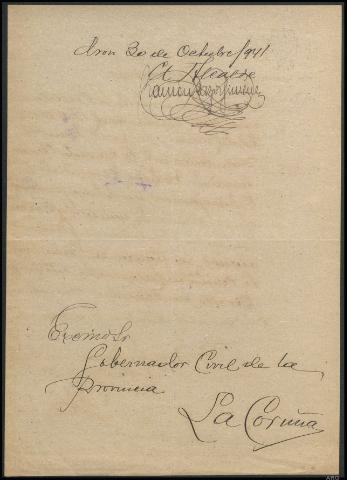 30 de Octubre/941
El Alcalde
Ramon
Excmo Sr
Gobernador Civil de la
Provincia
La Coruña